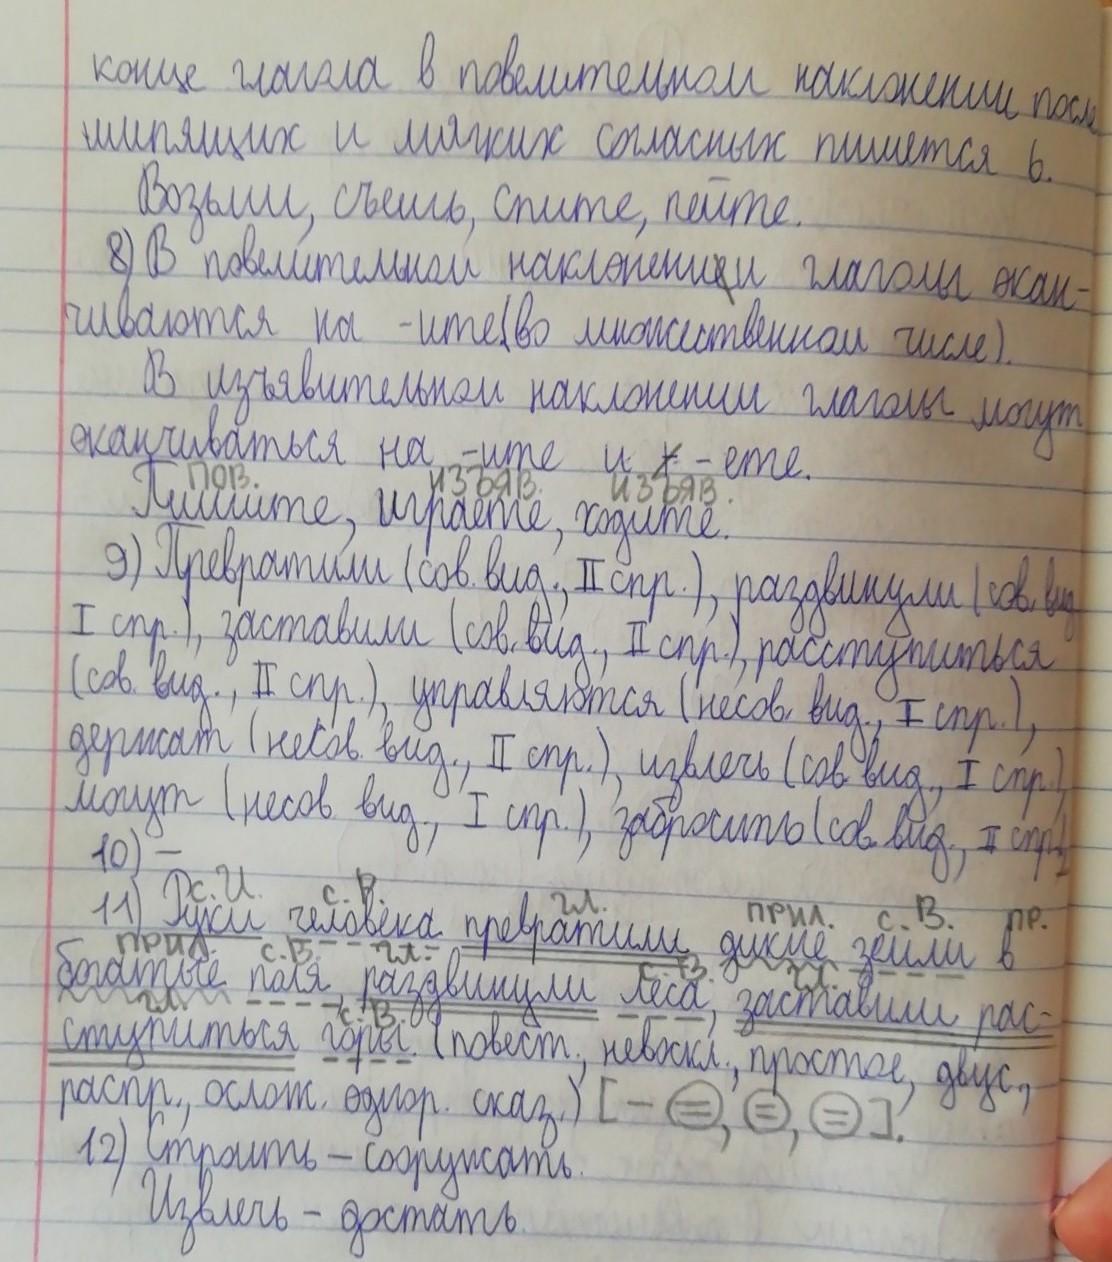 конце глагола в повелительном наклонении после
шипящих и мягких согласных пишется ь.
Возьми, съешь, спите, пейте.
8) В повелительной наклонении глаголы окан-
чиваются на -ите(во множественном числе).
В изъявительном наклонении глаголы могут
оканчиваться на -ите и -ете.
ПОВ. ИЗЪЯВ. ИЗЪЯВ.
Пишите, играете, ходите.
9) Превратили (сов. вид., II спр.), раздвинули (сов. вид
I спр.), заставили (сов. вид., II спр.), расступиться
(сов. вид., II спр.), управляются (несов. вид., I спр.),
держат (несов. вид., II спр.), извлечь (сов вид., I спр.),
могут (несов вид., I спр.), забросить (сов. вид., II спр.)
10) –
с. И. с. В. гл. ПРИЛ. с. В. ПР.
11) Руки человека превратили дикие земли в
ПРИЛ. с. В. гл. с. В. гл.
богатые поля, раздвинули леса, заставили рас-
гл. с. В.
ступиться горы. (повест., невоскл., простое, двус.,
распр., ослож. однор. сказ.) [– =, =, =].
12) Строить – сооружать.
Извлечь – достать.